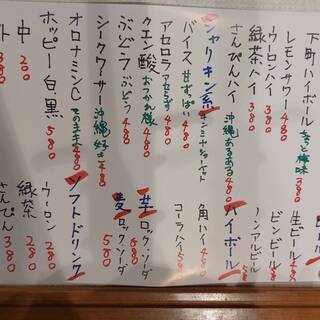 下町ハイボール ちょっと梅味 380
レモンサワー 480
ウーロンハイ 380
緑茶ハイ 380
さんぴんハイ 沖縄あるある 480
シャリキン系
バイス 甘ずっぱい 480
アセロラ アセミず 480
クエン酸 おつかれ様 480
ぶどう ぶどう 480
シークワーサー 沖縄好き 480
オロナミンC そのまま 480
ホッピー白・黒 580
中 200
ビンビール
生ビール
ノンアルビール
ハイボール
角ハイ 480
コーラハイ 580
芋 ロック・ソーダ 680
麦 ロック・ソーダ 580
ソフトドリンク
ウーロン 280
緑茶 280
さんぴん 380